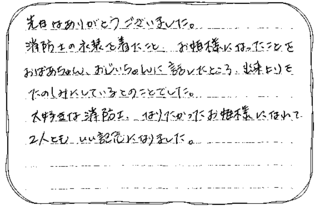 先日はありがとうございました。
消防士の衣装を着たこと、お姫様になったことを
おばあちゃん、おじいちゃんに話したところ、出来上りを
たのしみにしているとのことでした。
大好きな消防士、なりたかったお姫様になれて
2人とも いい記念になりました。